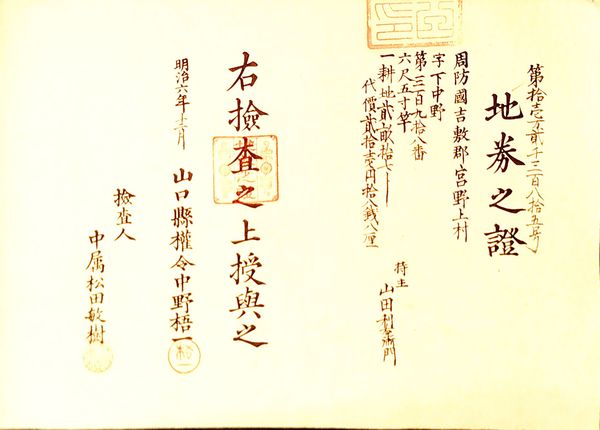 第拾壱万貳千三百八拾五号
地券之證
周防國吉敷郡宮野上村
字下中野
第三百九拾八番
六尺五寸竿
一耕地貳畝拾七歩
代價貳拾壱円拾八銭八厘
持主
山田利左衛門
右撿査之上授與之
明治六年十二月
山口縣權令中野梧一
撿査人
中属松田敏樹